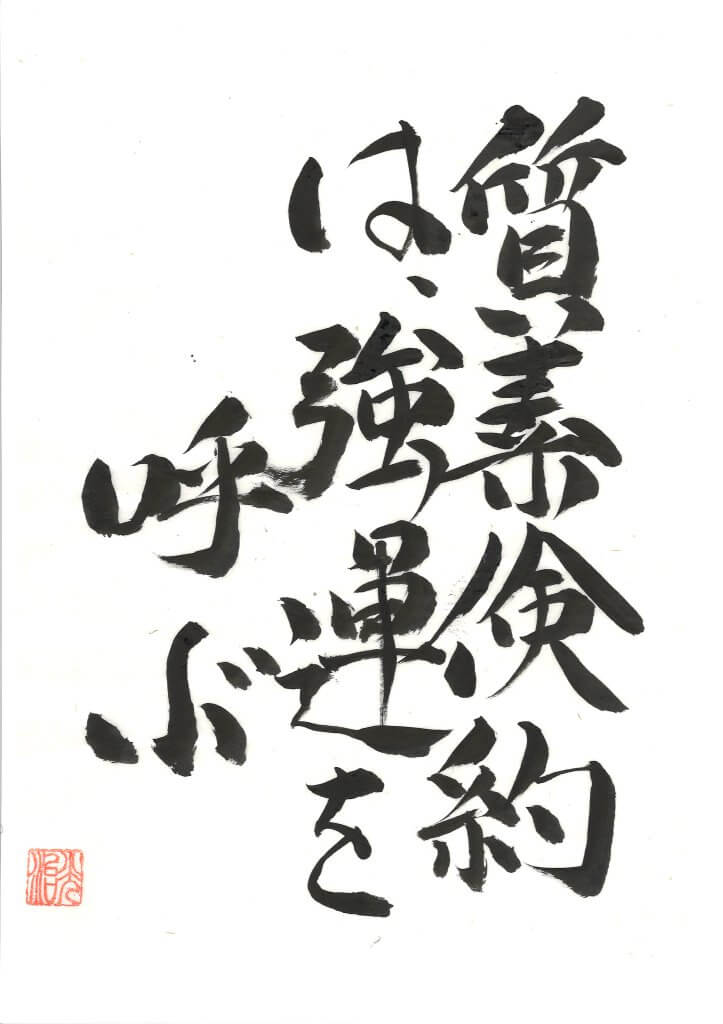 質素倹約
は、強運を
呼ぶ